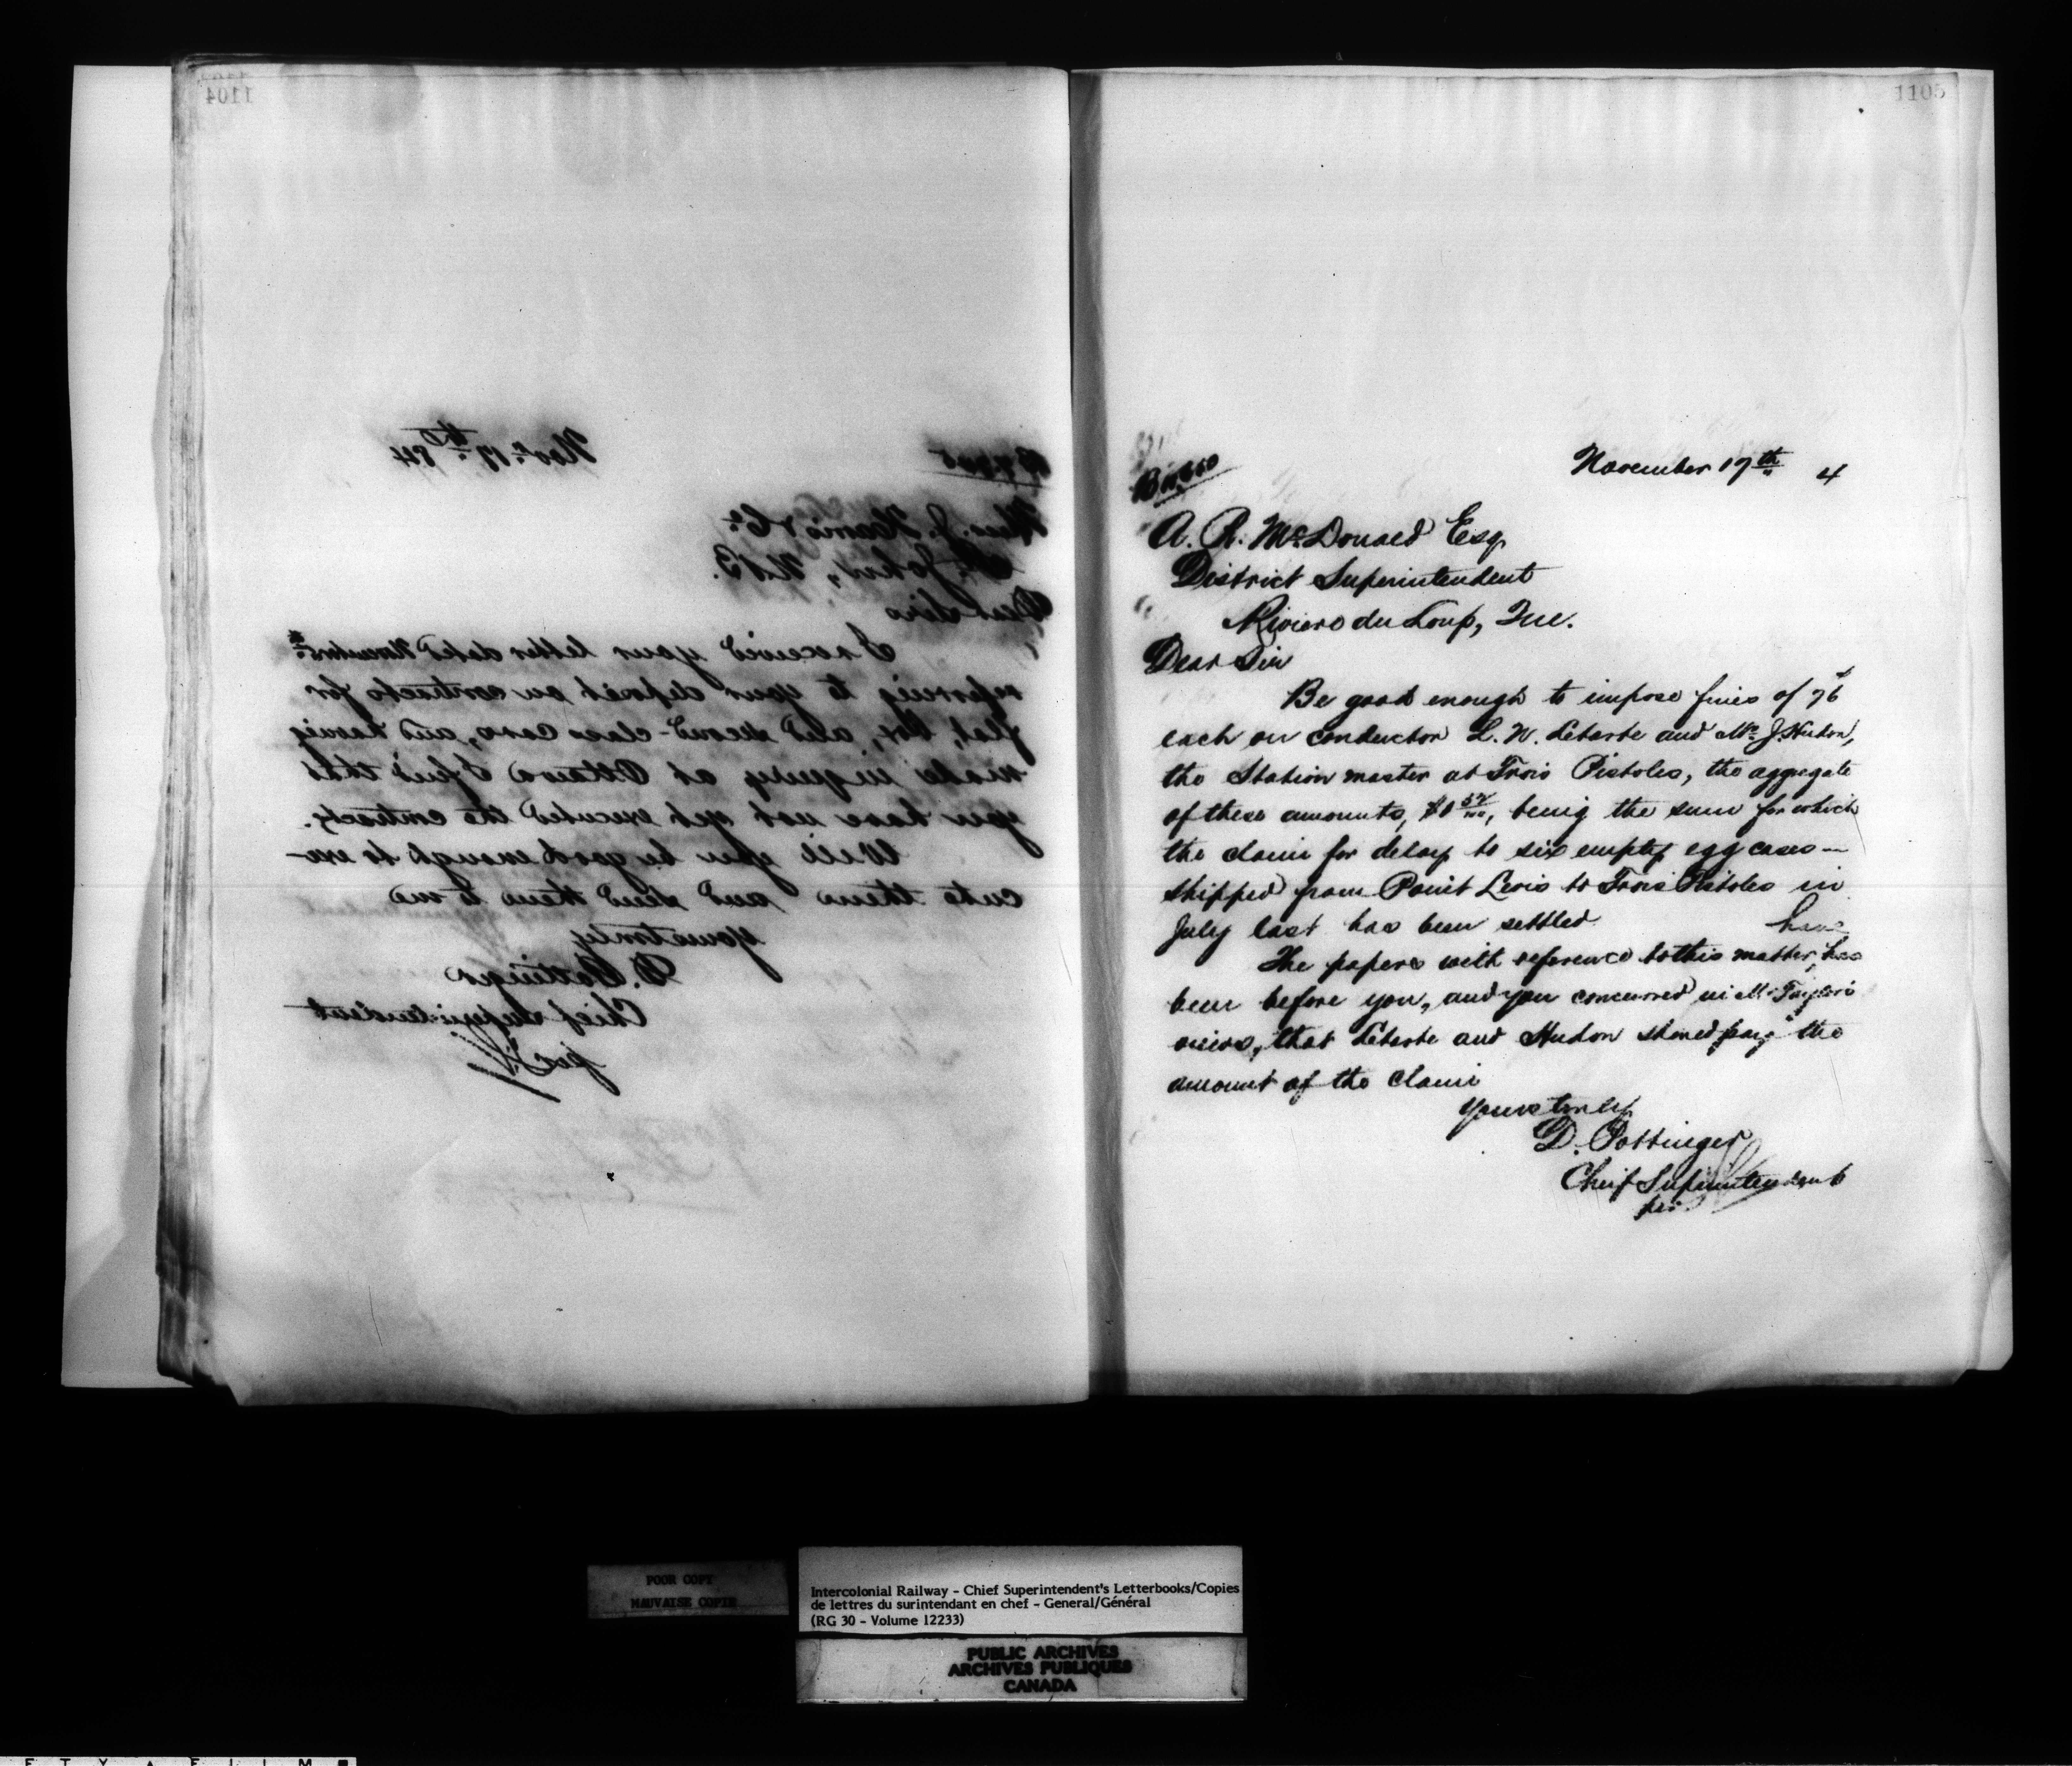 1104
Novr. 17th 84
Mess. J. Harris & Co.
St. John, N.B.
Dear Sirs
I received your letter dated
referring to your deposit on contracts for
flat, box, and second-class cars, and having
made inquiry at Ottawa I find that
you have not yet executed the contracts.
Will you be good enough to exe-
cute them and send them to me
Yours truly
D. Pottinger
Chief Superintendent
per
1105
November 17th 4
A. R. McDonald Esq
District Superintendent
Riviere du Loup, Que.
Dear Sir
Be good enough to impose fines of 76¢
each on conductor L. W. Leberte and Mr. J. Hudon,
the Station master at Trois Pistoles, the aggregate
of these amounts, $1 52/100, being the sum for which
the claim for delay to six empty egg cases —
shipped from Point Levis to Trois Pistoles in
July last has been settled
have
The papers with reference to this matter, has
been before you, and you concurred in Mr Taylor's
views, that Leberte and Hudon should pay the
amount of the claim
Yours truly
D. Pottinger
Cheif Superintendent
per
POOR COPY
MAUVAISE COPIE
Intercolonial Railway - Chief Superintendent's Letterbooks/Copies
de lettres du surintendant en chef - General/Général
(RG 30 - Volume 12233)
PUBLIC ARCHIVES
ARCHIVES PUBLIQUES
CANADA